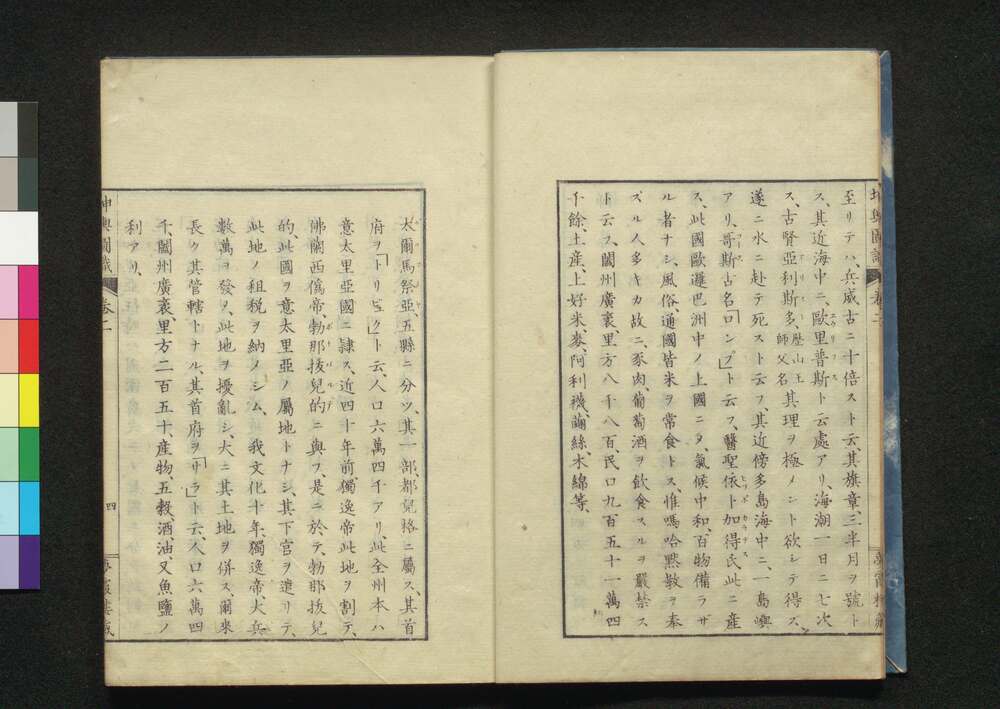 坤輿圖識 卷二
至リテハ、兵威古ニ十倍スト云、其旗章、三半月ヲ號ト
ス、其近海中ニ、歐里普斯ト云處アリ、海潮一日ニ七次
ス、古賢亞利斯多、歴山王師父名其理ヲ極メント欲シテ得ス、
遂ニ水ニ赴テ死スト云フ、其近傍多島海中ニ、一島嶼
アリ、哥斯古名「ロンゴ」ト云フ、醫聖依卜加得氏此ニ産
ス、此國歐邏巴洲中ノ上國ニメ、氣候中和、百物備ラザ
ル者ナシ、風俗、通國皆米ヲ常食トス、惟嗎哈黙教ヲ奉
ズル人多キカ故ニ、豕肉、葡萄酒ヲ飲食スルヲ嚴禁ス
ト云フ、闔州廣袤、里方八千八百、民口九百五十一萬四
千餘、土産、上好米麥、阿利襪、繭絲、木綿等、
太爾馬祭亞、五縣ニ分ツ、其一部都兒格ニ屬ス、其首
府ヲ「トリヒュク」ト云、人口六萬四千アリ、此全州本ハ
意太里亞國ニ隷ス、近四十年前獨逸帝此地ヲ割テ、
佛蘭西僞帝、勃那拔兒的ニ與フ、是ニ於テ、勃那拔兒
的、此國ヲ意太里亞ノ屬地トナシ、其下官ヲ遣リテ、
此地ノ租税ヲ納メシム、我文化十年、獨逸帝大兵
數萬ヲ發メ、此地ヲ擾亂シ、大ニ其土地ヲ併ス、爾來
長ク其管轄トナル、其首府ヲ「サラ」ト云、人口六萬四
千、闔州廣袤里方二百五十、産物、五穀、酒油、又魚鹽ノ
利アリ、
坤輿圖識 卷二 四